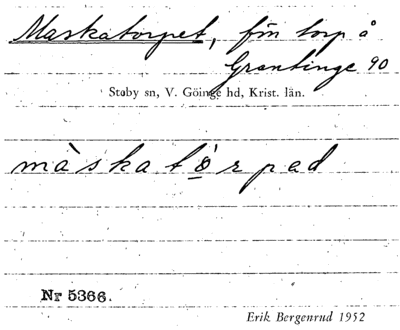 Maskatorpet, fin torp å
Grantinge 90
Stoby sn, V. Göinge hd, Krist. län.
màskatò̱rpad
Nr 5366.
Erik Bergenrud 1952